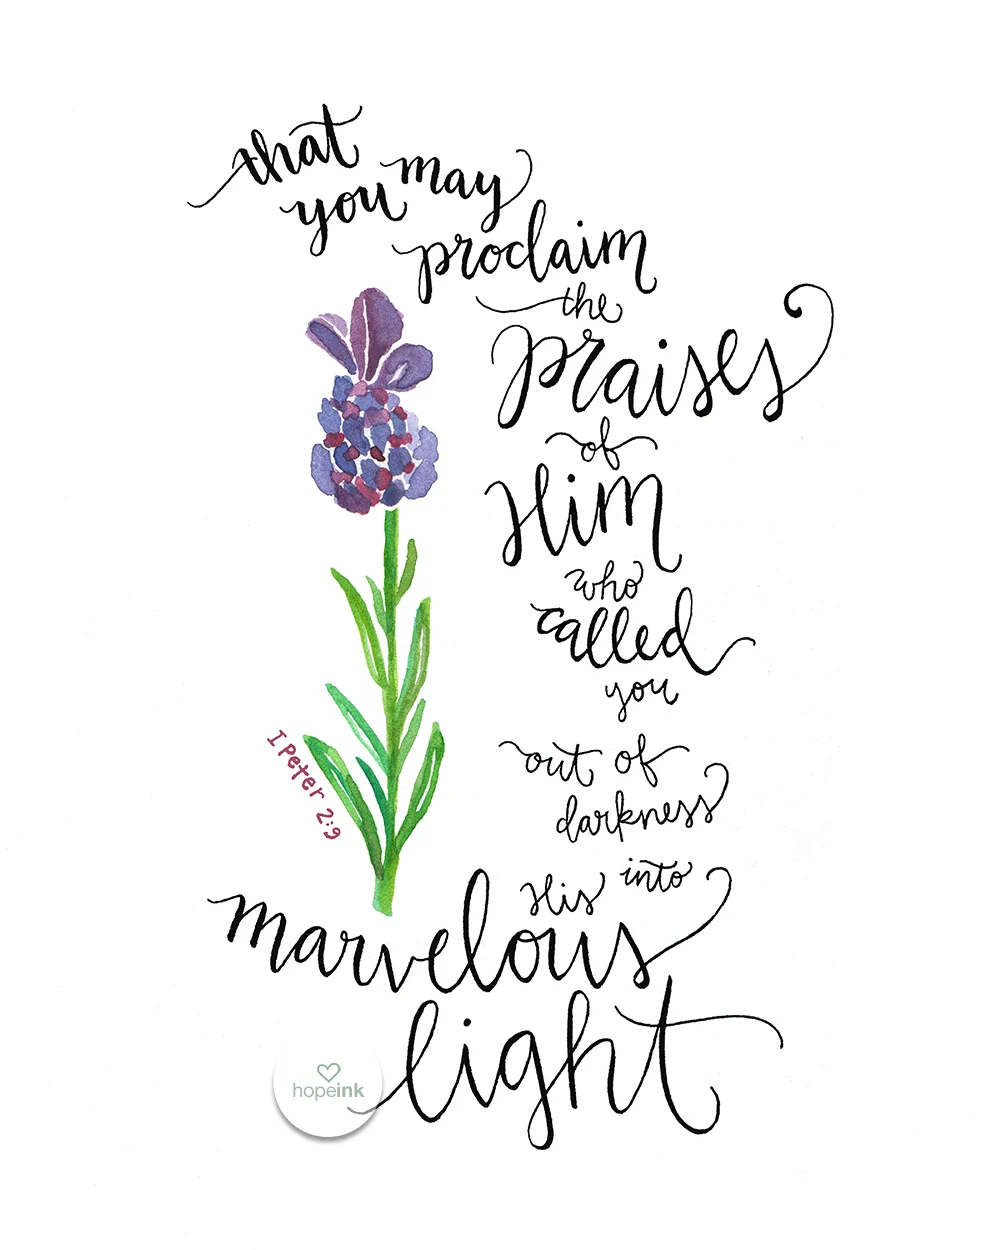 that
you may
proclaim
the
praises
of
Him
who
called
you
out of
darkness
into
His
marvelous
light
1 Peter 2:9
hopeink